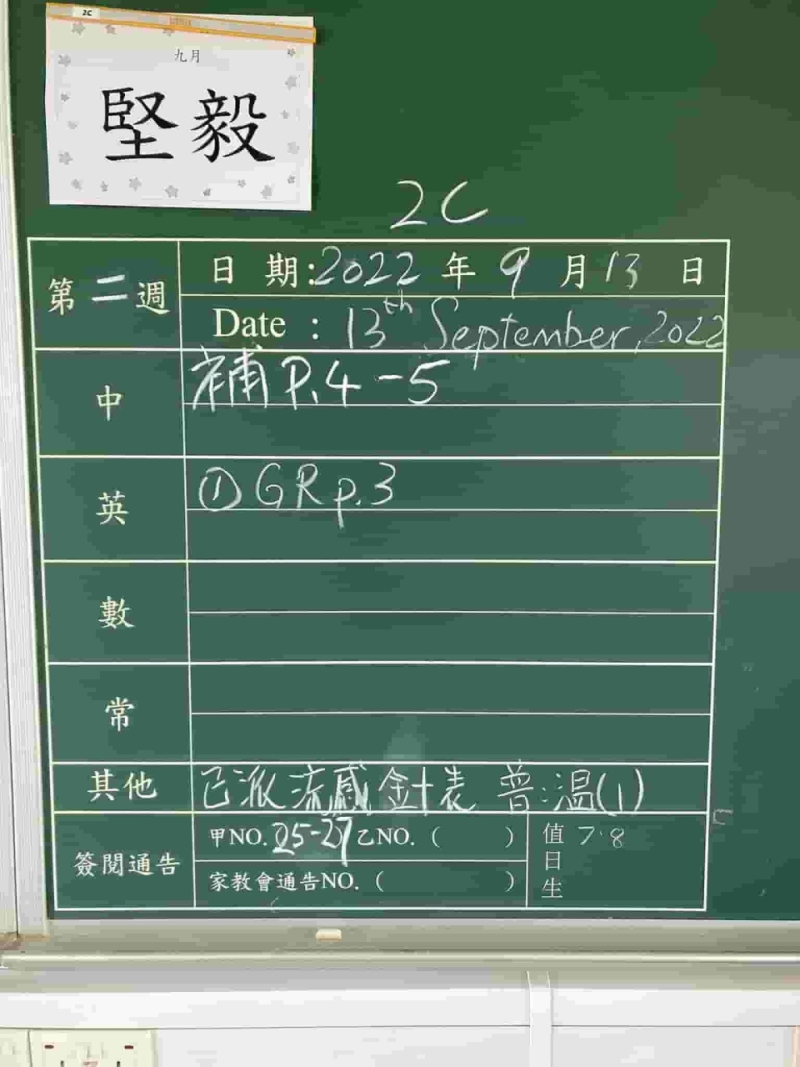 2C
九月
堅毅
2C
第二週
日 期:2022 年 9 月 13 日
Date : 13th September, 2022
中
補 P.4-5
英
① GR p.3
數
常
其他
已派流感針表 普:溫(1)
簽閱通告
甲NO. 25-27 乙NO. ( )
家教會通告NO. ( )
值日生 7.8